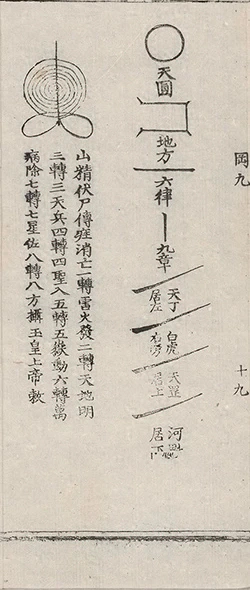 岡九
十九
天圓
地方
六律
九章
天丁
居左
白虎
右旁
天罡
居上
河魁
居下
山精伏尸傳疰消亡一轉雷火發二轉天地明
三轉三天兵四轉四聖入五轉五嶽動六轉萬
病除七轉七星佐八轉八方攝玉皇上帝敕